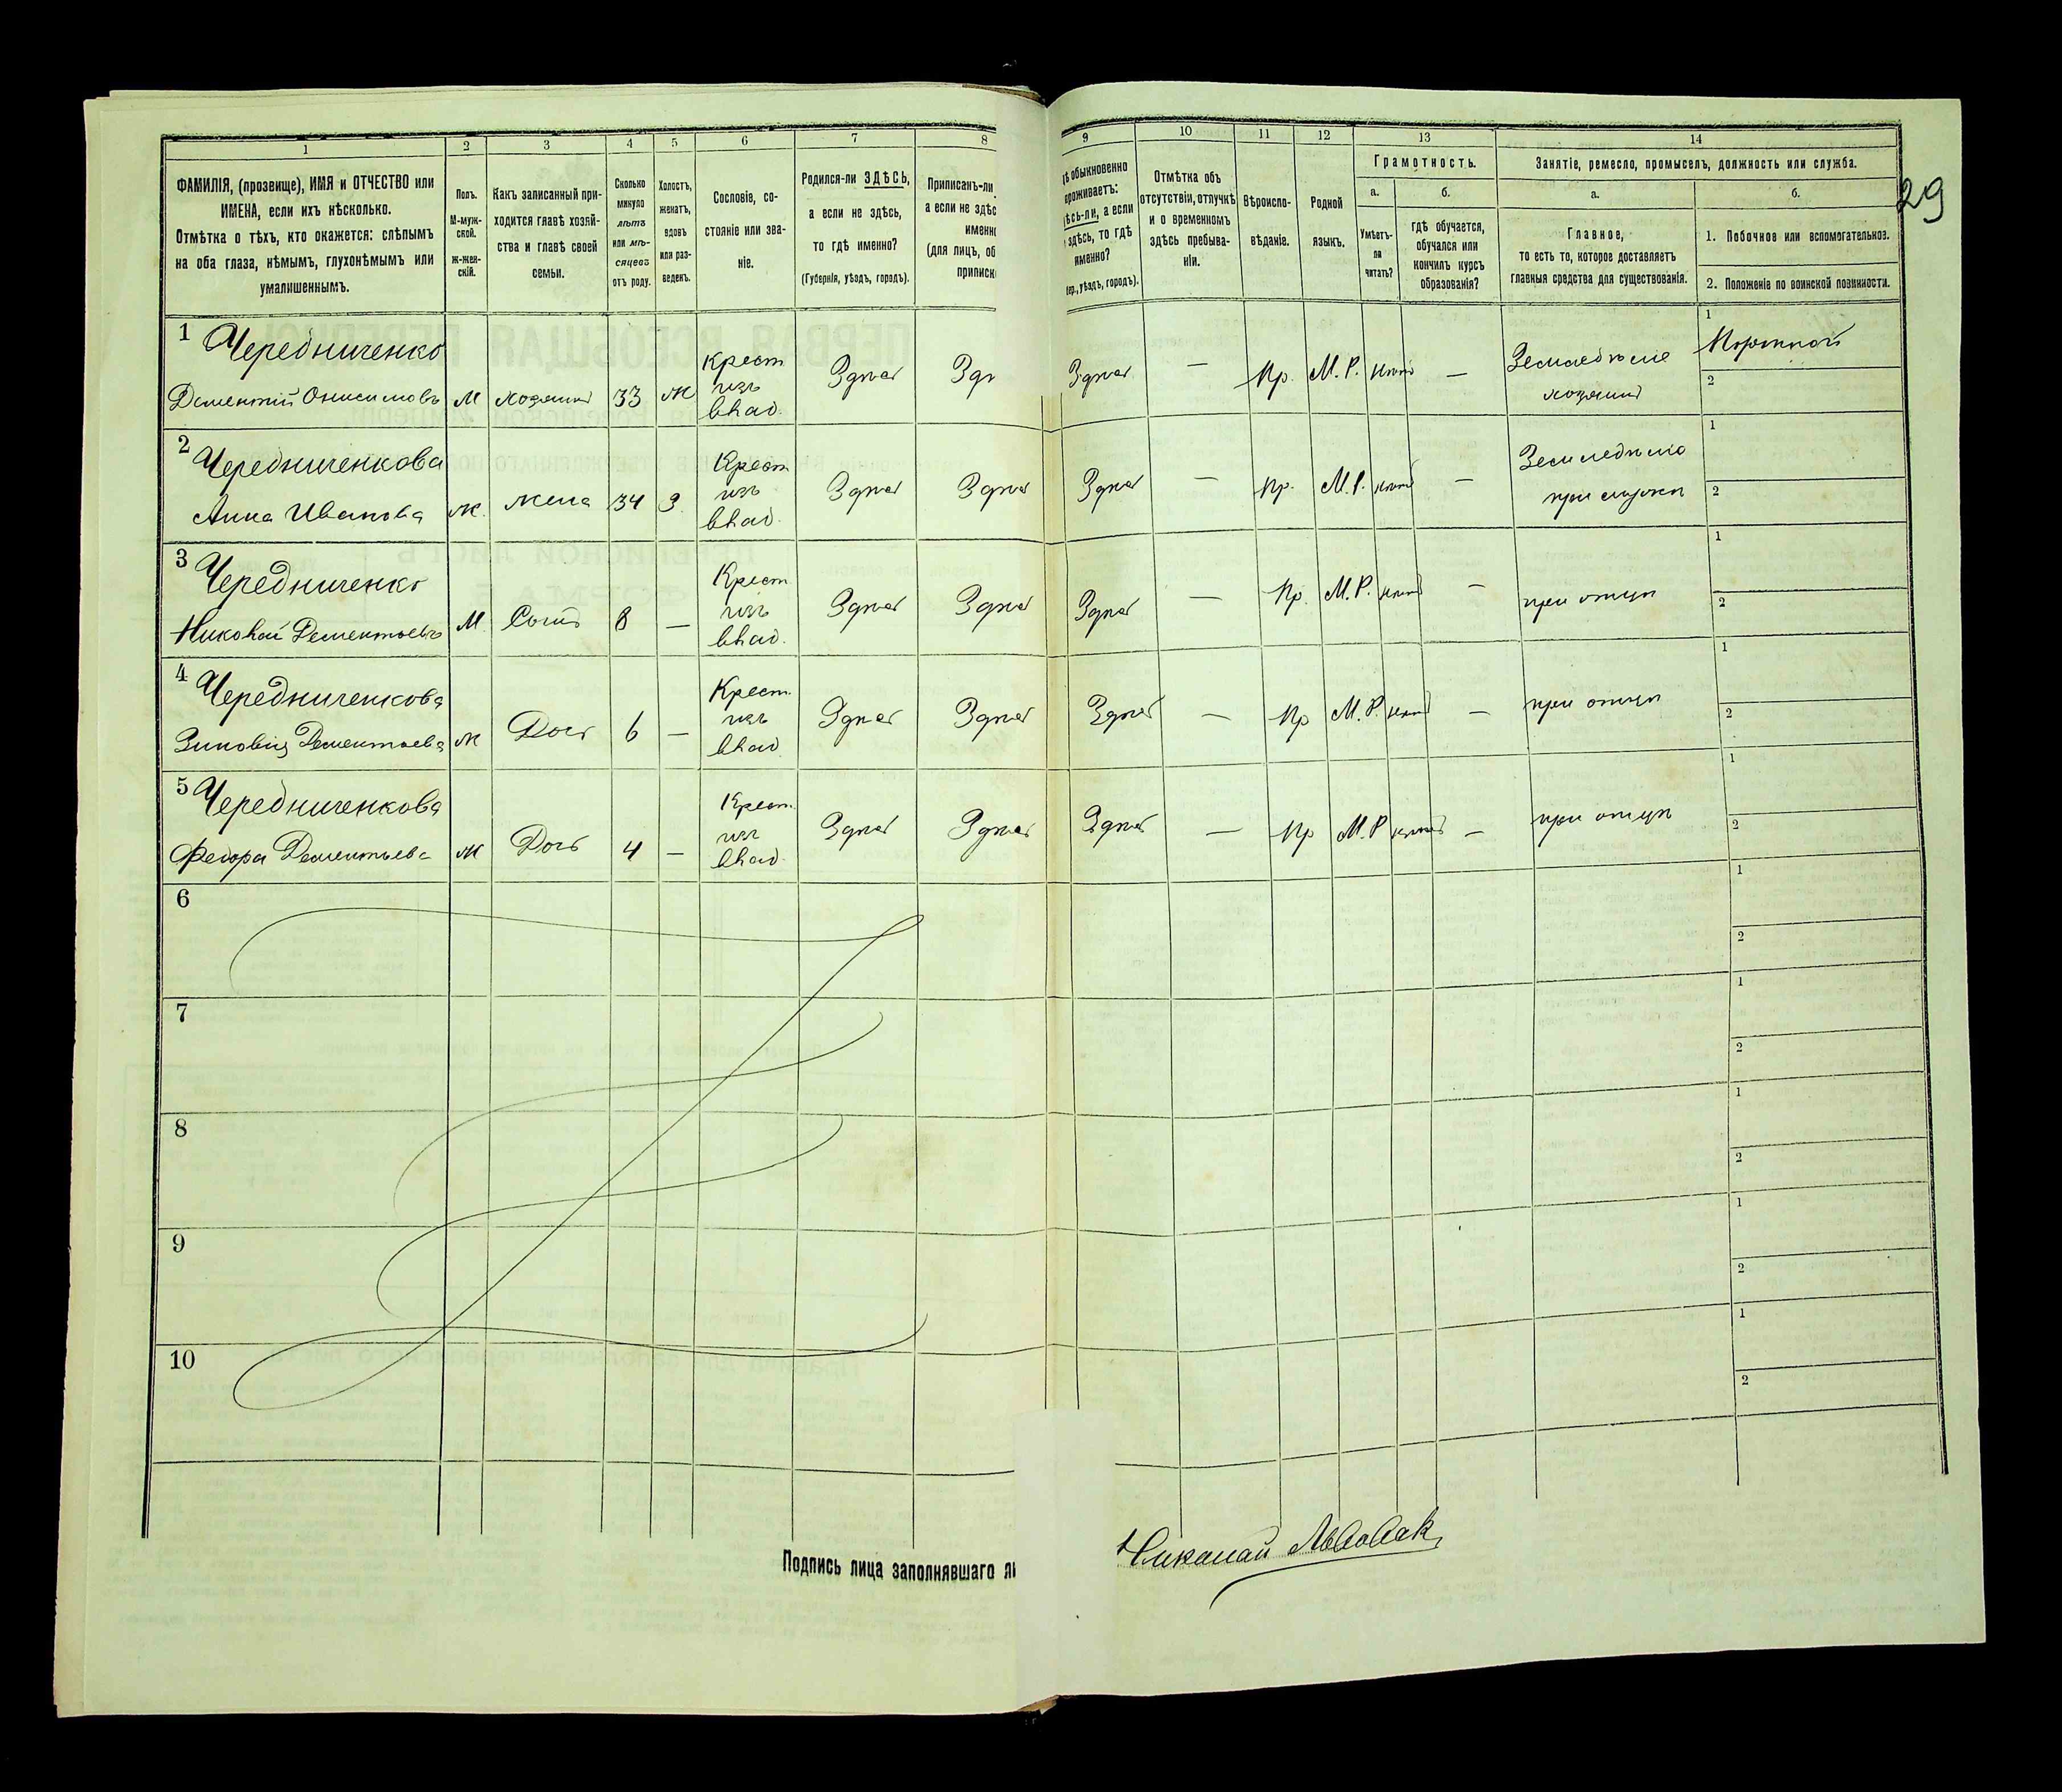 29
1 2 3 4 5 6 7 8 9 10 11 12 13 14
ФАМИЛІЯ, (прозвище), ИМЯ и ОТЧЕСТВО или
ИМЕНА, если ихъ нѣсколько.
Отмѣтка о тѣхъ, кто окажется: слѣпымъ
на оба глаза, нѣмымъ, глухонѣмымъ или
умалишеннымъ.
Полъ.
М-муж-
ской.
ж-жен-
скій.
Какъ записанный при-
ходится главѣ хозяй-
ства и главѣ своей
семьи.
Сколько
минуло
лѣтъ
или мѣ-
сяцевъ
отъ роду.
Холостъ,
женатъ,
вдовъ
или раз-
веденъ.
Сословіе, со-
стояніе или зва-
ніе.
Родился-ли ЗДѢСЬ,
а если не здѣсь,
то гдѣ именно?
(Губернія, уѣздъ, городъ).
Приписанъ-ли
а если не здѣс
именн
(для лицъ, об
приписк
ѣ обыкновенно
роживаетъ:
ѣсь-ли, а если
здѣсь, то гдѣ
именно?
бер., уѣздъ, городъ).
Отмѣтка объ
отсутствіи, отлучкѣ
и о временномъ
здѣсь пребыва-
ніи.
Вѣроиспо-
вѣданіе.
Родной
языкъ.
Грамотность.
а.
Умѣетъ-
ли
читать?
б.
гдѣ обучается,
обучался или
кончилъ курсъ
образованія?
Занятіе, ремесло, промыселъ, должность или служба.
а.
Главное,
то есть то, которое доставляетъ
главныя средства для существованія.
б.
1. Побочное или вспомогательное.
2. Положеніе по воинской повинности.
1 Чередниченко
Дементій Онисимовъ М хозяинъ 33 ж Крест. изъ влад. Здѣсь Зд Здѣсь — Пр. М. Р. нѣтъ — Земледѣліе хозяинъ
1
2
2 Чередниченкова
Анна Иванова ж. жена 34 З. Крест. изъ влад. Здѣсь Здѣсь Здѣсь — Пр. М. Р. нѣтъ — Земледѣліе при мужѣ
1
2
3 Чередниченко
Николай Дементьевъ М. Сынъ 8 — Крест. изъ влад. Здѣсь Здѣсь Здѣсь — Пр. М. Р. нѣтъ — при отцѣ
1
2
4 Чередниченкова
Зиновія Дементьева ж Дочь 6 — Крест. изъ влад. Здѣсь Здѣсь Здѣсь — Пр М. Р. нѣтъ — при отцѣ
1
2
5 Чередниченкова
Федора Дементьева ж Дочь 4 — Крест. изъ влад. Здѣсь Здѣсь Здѣсь — Пр М. Р нѣтъ — при отцѣ
1
2
6
1
2
7
1
2
8
1
2
9
1
2
10
1
2
Подпись лица заполнявшаго л
Николай